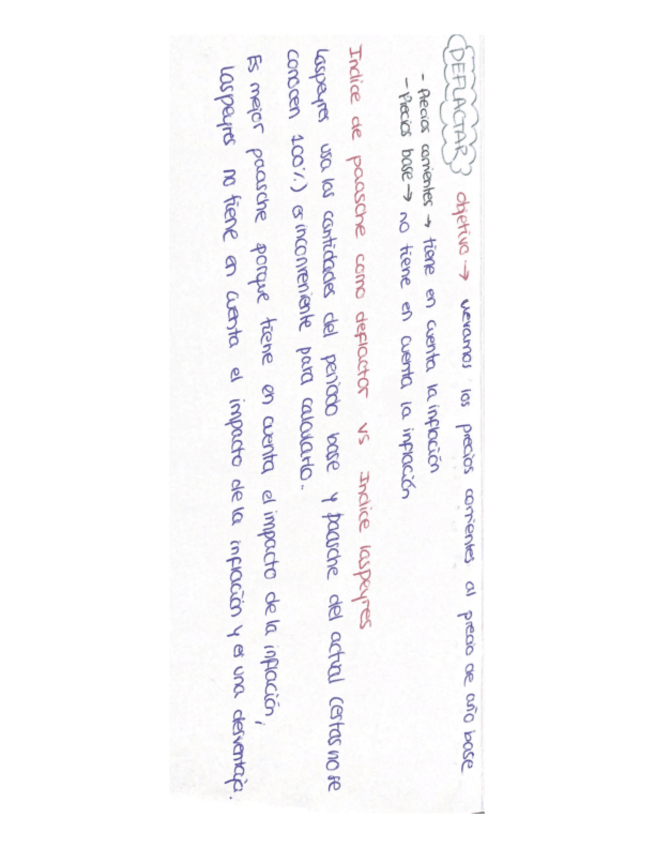 DEFLACTAR objetivo → llevamos los precios corrientes al precio de año base
- Precios corrientes → tiene en cuenta la inflación
- Precios base → no tiene en cuenta la inflación
Indice de paasche como deflactor vs Indice laspeyres
laspeyres usa las cantidades del periodo base y paasche del actual (estas no se
conocen 100%) es inconveniente para calcularlo.
Es mejor paasche porque tiene en cuenta el impacto de la inflación,
laspeyres no tiene en cuenta el impacto de la inflación y es una desventaja.